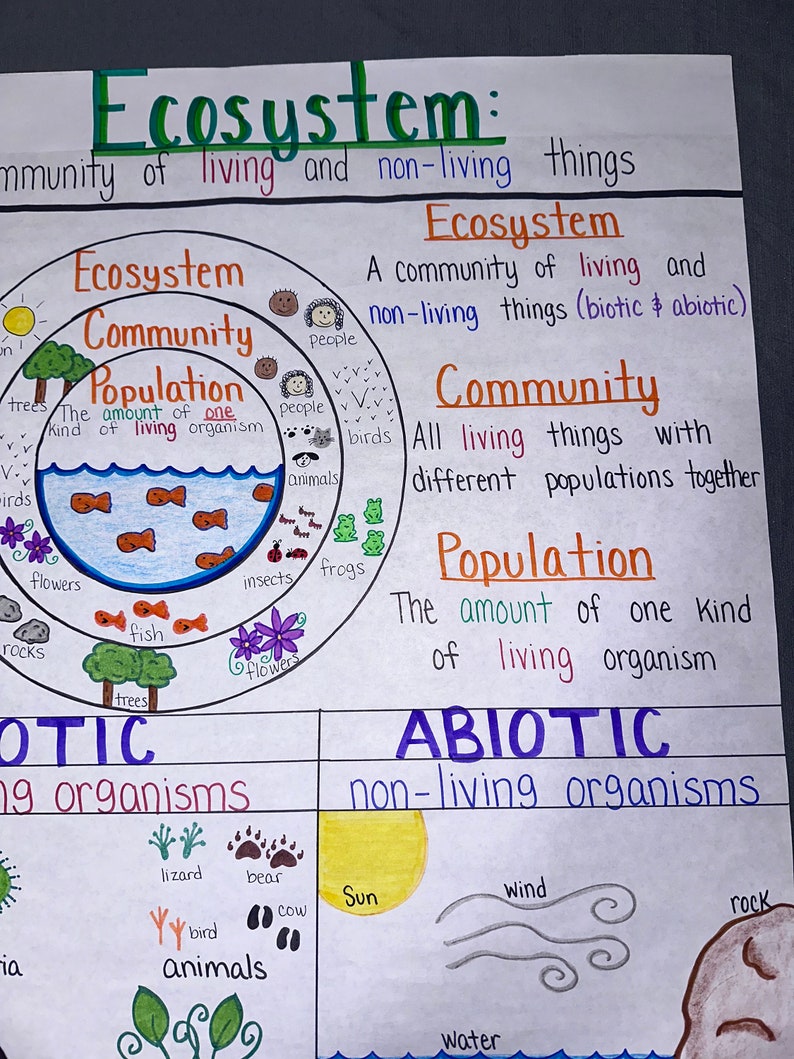 Ecosystem:
mmunity of living and non-living things
Ecosystem
A community of living and
non-living things (biotic & abiotic)
Community
All living things with
different populations together
Population
The amount of one kind
of living organism
Ecosystem
people
un
Community
trees
people
birds
Population
The amount of one
kind of living organism
animals
irds
flowers
insects
frogs
fish
rocks
flowers
trees
OTIC
ng organisms
lizard
bear
bird
cow
ia
animals
ABIOTIC
non-living organisms
Sun
wind
rock
water